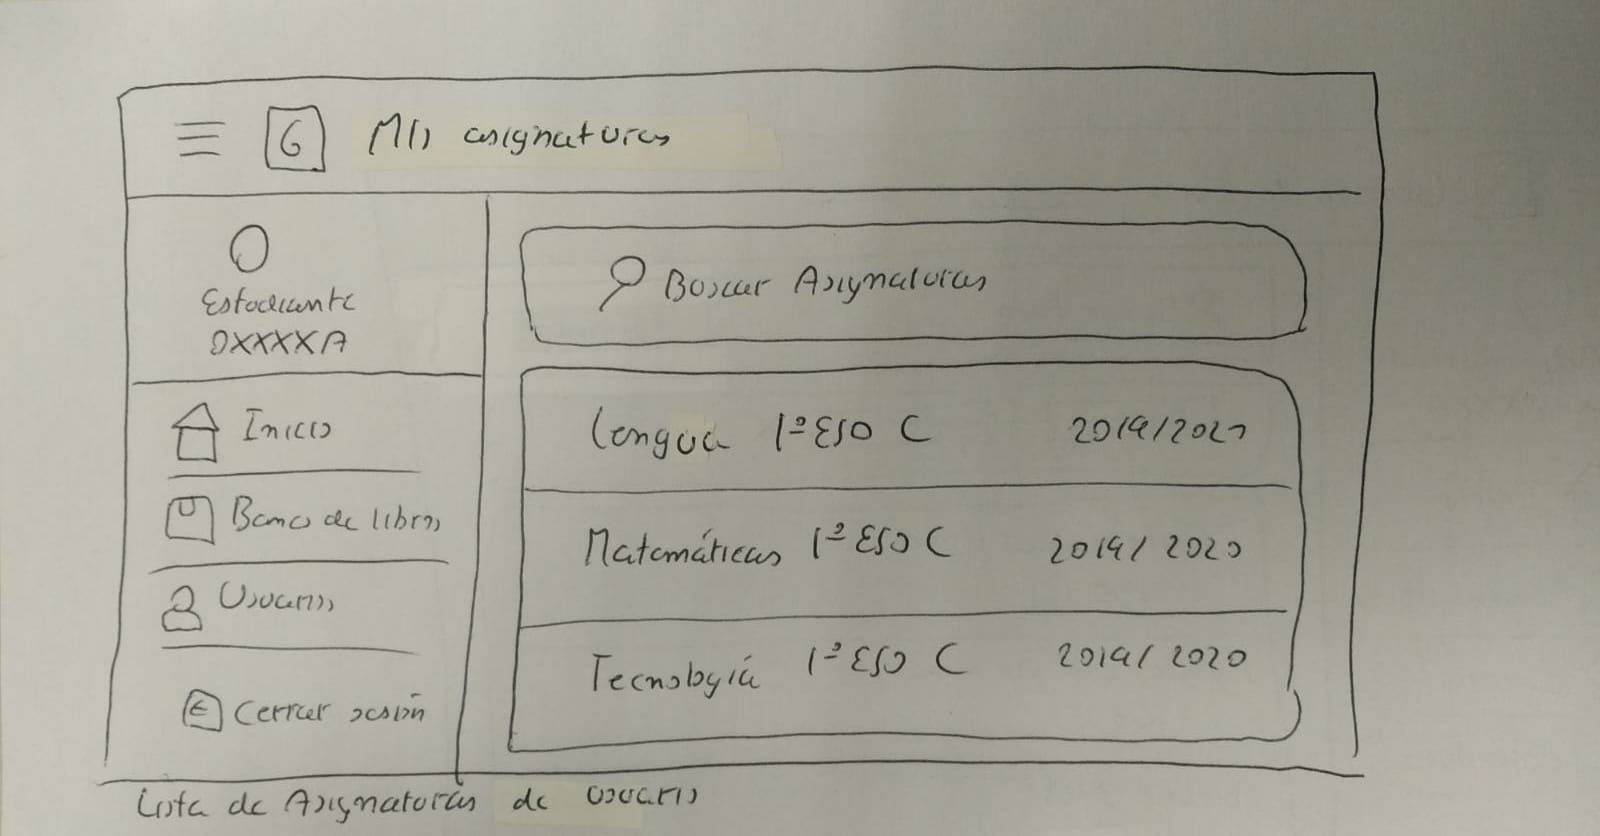 G Mis asignaturas
Estudiante
0XXXXA
Buscar Asignaturas
Inicio
Banco de libros
Usuario
Cerrar sesión
Lengua 1º ESO C 2019/2020
Matemáticas 1º ESO C 2019/2020
Tecnología 1º ESO C 2019/2020
Lista de Asignaturas de usuario